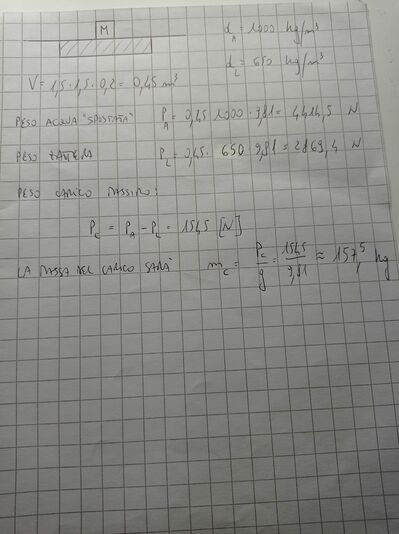 M
d_A = 1000 kg/m³
d_L = 650 kg/m³
V = 1,5 · 1,5 · 0,2 = 0,45 m³
PESO ACQUA "SPOSTATA" P_A = 0,45 1000 · 9,81 = 4414,5 N
PESO ZATTERA P_L = 0,45 · 650 · 9,81 = 2869,4 N
PESO CARICO MASSIMO:
P_C = P_A - P_L = 1545 [N]
LA MASSA DEL CARICO SARÀ m_C = P_C/g = 1545/9,81 ≈ 157,5 kg